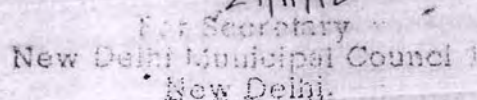 For Secretary
New Delhi Municipal Council
New Delhi.